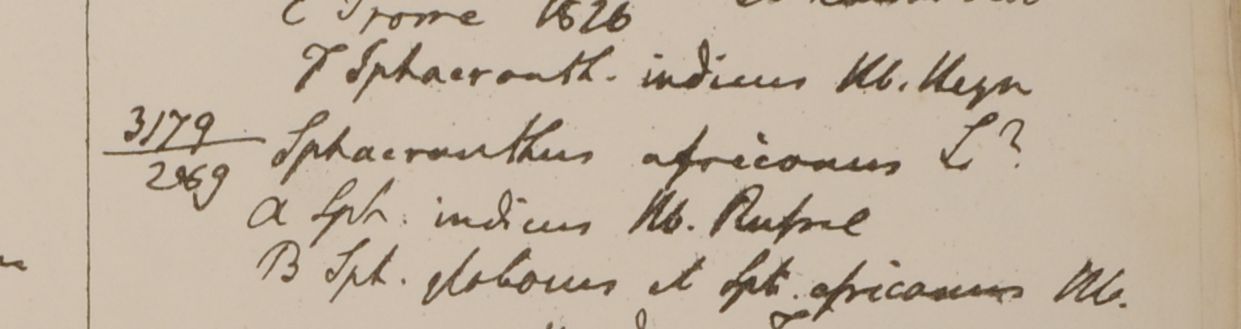 C Prome 1826
γ Sphaeranth. indicus Hb. Heyn
3179 Sphaeranthus africanus L?
2969
a Sph. indicus Hb. Russel
B Sph. globosus et Sph. africanus Hb.